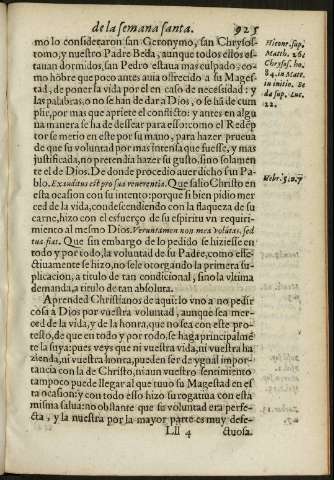 de la semana santa. 925
mo lo consideraron san Geronymo, san Chrysos-
tomo, y nuestro Padre Beda, aunque todos ellos es-
tauan dormidos, san Pedro estaua mas culpado: co-
mo hõbre que poco antes auia ofrecido a su Mages-
tad, de poner la vida por el en caso de necessidad: y
las palabras, o no se han de dar a Dios, o se hã de cum
plir, por mas que apriete el conflicto: y antes en algu
na manera se ha de dessear para esso: como el Redẽp
tor se metio en este por su mano, para hazer prueua
de que su voluntad por mas intensa que fuesse, y mas
justificada, no pretendia hazer su gusto, sino solamen
te el de Dios. De donde procedio auer dicho san Pa-
blo. Exauditus est pro sua reuerentia. Que salio Christo en
esta ocasion con su intento: porque si bien pidio mer
ced de la vida, condescendiendo con la flaqueza de su
carne, hizo con el esfuerço de su espiritu vn requiri-
miento al mesmo Dios. Veruntamen non mea volũtas, sed
tua fiat. Que sin embargo de lo pedido se hiziesse en
todo y por todo, la voluntad de su Padre, como effe-
ctiuamente se hizo, no sele otorgãdo la primera su-
plicacion, a titulo de tan condicional, sino la vltima
demanda, a titulo de tan absoluta.
Aprended Christianos de aqui: lo vno a no pedir
cosa à Dios por vuestra voluntad, aunque sea mer-
ced de la vida, y de la honra, que no sea con este pro-
testo, de que en todo y por todo, se haga principalmẽ
te la suya: pues veys que ni vuestra vida, ni vuestra ha
zienda, ni vuestra honra, pueden ser de ygual impor-
tancia con la de Christo, ni aun vuestro sentimiento
tampoco puede llegar al que tuuo su Magestad en es
ta ocasion: y con todo esso hizo su rogatiua con esta
misma salua: no obstante que su voluntad era perfe-
cta, y la nuestra por la mayor parte es muy defe-
Lll 4 ctuosa.
Hieror. sup.
Matth. 26.
Chrysos. ho.
84. in Matt.
in initio. Be
da sup. Luc.
22.
Hebr. 5. v. 7